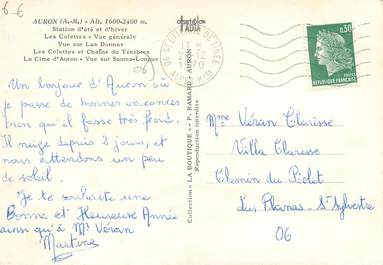 6-6
AURON (A.-M.) - Alt. 1600-2400 m.
Station d'été et d'hiver
Les Colettes - Vue générale
Vue sur Las Donnas
Les Colettes et Chaîne du Ténibres
La Cime d'Auron - Vue sur Sauma-Longue
06
Un bonjour d'Auron où
je passe de bonnes vacances
bien qu'il fasse très froid.
il neige depuis 2 jours, et
nous attendons un peu
de soleil.
Je te souhaite une
Bonne et Heureuse Année
ainsi qu'à Mr Véran
Martine
Collection : LA BOUTIQUE - P. RAMARD - AURON
Reproduction interdite
0,30
REPUBLIQUE FRANÇAISE
Mme Véran Clarisse
Villa Clarisse
Chemin du Piolet
Les Planas - St Sylvestre
06